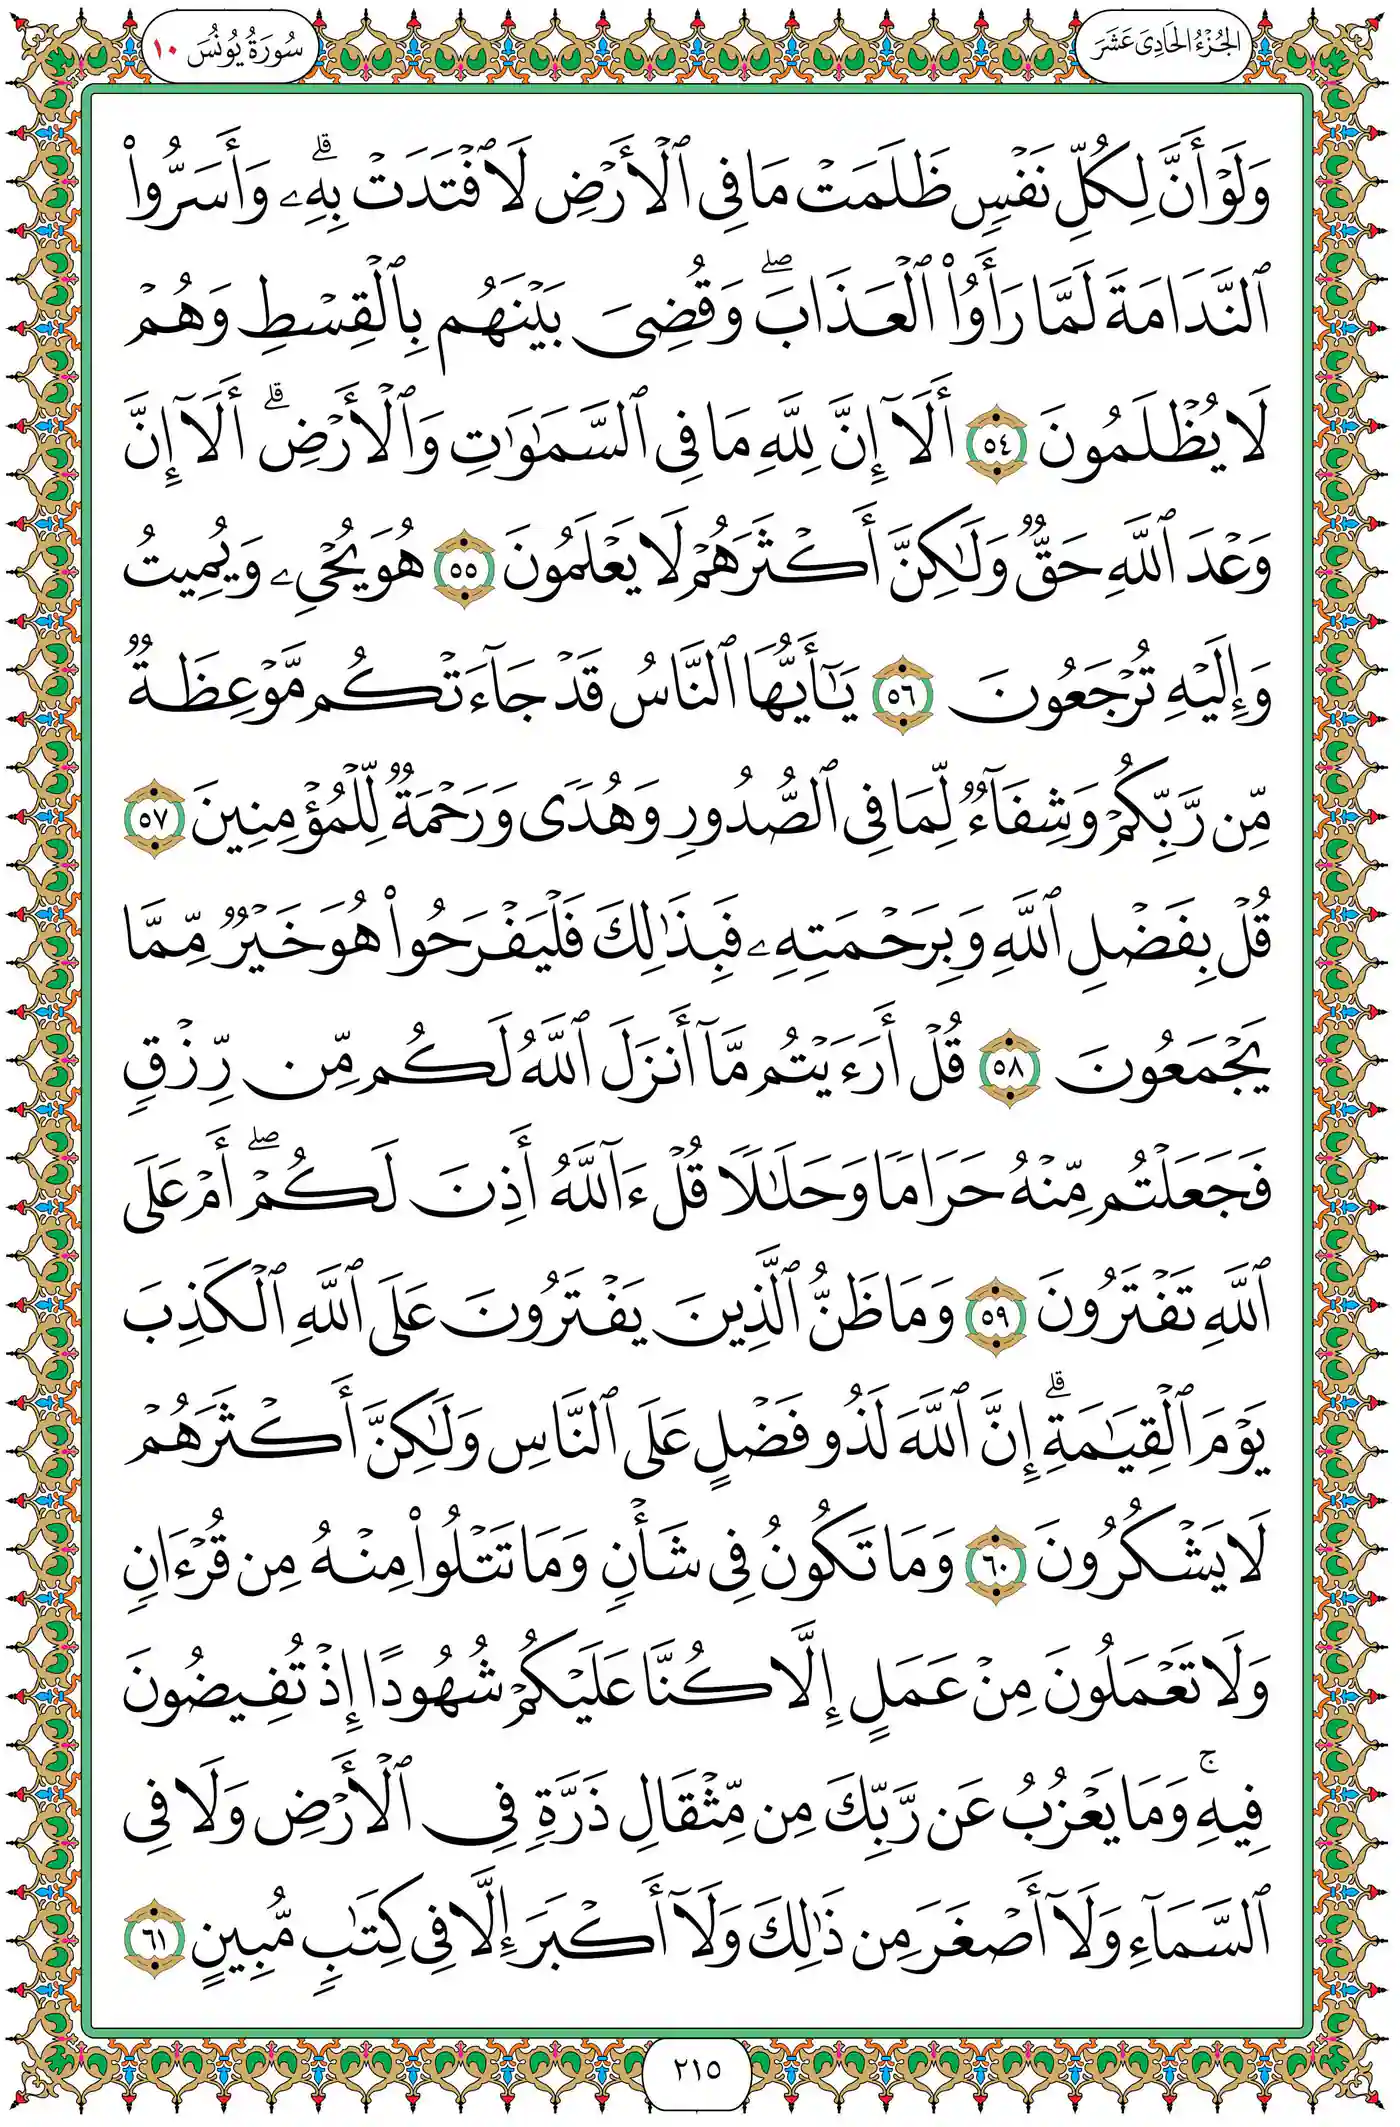 الجُزْءُ الحَادِىَ عَشَرَ
سُورَةُ يُونُسَ ١٠
وَلَوۡ أَنَّ لِكُلِّ نَفۡسٖ ظَلَمَتۡ مَا فِي ٱلۡأَرۡضِ لَٱفۡتَدَتۡ بِهِۦۗ وَأَسَرُّواْ
ٱلنَّدَامَةَ لَمَّا رَأَوُاْ ٱلۡعَذَابَۖ وَقُضِيَ بَيۡنَهُم بِٱلۡقِسۡطِ وَهُمۡ
لَا يُظۡلَمُونَ ٥٤ أَلَآ إِنَّ لِلَّهِ مَا فِي ٱلسَّمَٰوَٰتِ وَٱلۡأَرۡضِۗ أَلَآ إِنَّ
وَعۡدَ ٱللَّهِ حَقّٞ وَلَٰكِنَّ أَكۡثَرَهُمۡ لَا يَعۡلَمُونَ ٥٥ هُوَ يُحۡيِۦ وَيُمِيتُ
وَإِلَيۡهِ تُرۡجَعُونَ ٥٦ يَٰٓأَيُّهَا ٱلنَّاسُ قَدۡ جَآءَتۡكُم مَّوۡعِظَةٞ
مِّن رَّبِّكُمۡ وَشِفَآءٞ لِّمَا فِي ٱلصُّدُورِ وَهُدٗى وَرَحۡمَةٞ لِّلۡمُؤۡمِنِينَ ٥٧
قُلۡ بِفَضۡلِ ٱللَّهِ وَبِرَحۡمَتِهِۦ فَبِذَٰلِكَ فَلۡيَفۡرَحُواْ هُوَ خَيۡرٞ مِّمَّا
يَجۡمَعُونَ ٥٨ قُلۡ أَرَءَيۡتُم مَّآ أَنزَلَ ٱللَّهُ لَكُم مِّن رِّزۡقٖ
فَجَعَلۡتُم مِّنۡهُ حَرَامٗا وَحَلَٰلٗا قُلۡ ءَآللَّهُ أَذِنَ لَكُمۡۖ أَمۡ عَلَى
ٱللَّهِ تَفۡتَرُونَ ٥٩ وَمَا ظَنُّ ٱلَّذِينَ يَفۡتَرُونَ عَلَى ٱللَّهِ ٱلۡكَذِبَ
يَوۡمَ ٱلۡقِيَٰمَةِۗ إِنَّ ٱللَّهَ لَذُو فَضۡلٍ عَلَى ٱلنَّاسِ وَلَٰكِنَّ أَكۡثَرَهُمۡ
لَا يَشۡكُرُونَ ٦٠ وَمَا تَكُونُ فِي شَأۡنٖ وَمَا تَتۡلُواْ مِنۡهُ مِن قُرۡءَانٖ
وَلَا تَعۡمَلُونَ مِنۡ عَمَلٍ إِلَّا كُنَّا عَلَيۡكُمۡ شُهُودًا إِذۡ تُفِيضُونَ
فِيهِۚ وَمَا يَعۡزُبُ عَن رَّبِّكَ مِن مِّثۡقَالِ ذَرَّةٖ فِي ٱلۡأَرۡضِ وَلَا فِي
ٱلسَّمَآءِ وَلَآ أَصۡغَرَ مِن ذَٰلِكَ وَلَآ أَكۡبَرَ إِلَّا فِي كِتَٰبٖ مُّبِينٍ ٦١
٢١٥